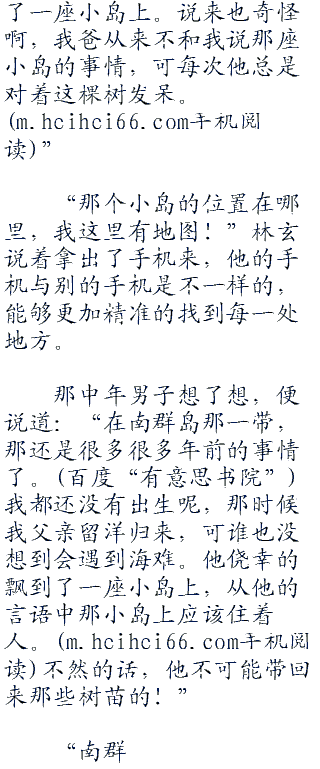 了一座小岛上。说来也奇怪
啊，我爸从来不和我说那座
小岛的事情，可每次他总是
对着这棵树发呆。
(m.hcihci66.com手机阅
读)”
“那个小岛的位置在哪
里，我这里有地图！”林玄
说着拿出了手机来，他的手
机与别的手机是不一样的，
能够更加精准的找到每一处
地方。
那中年男子想了想，便
说道：“在南群岛那一带，
那还是很多很多年前的事情
了。(百度“有意思书院”)
我都还没有出生呢，那时候
我父亲留洋归来，可谁也没
想到会遇到海难。他侥幸的
飘到了一座小岛上，从他的
言语中那小岛上应该住着
人。(m.hcihci66.com手机阅
读)不然的话，他不可能带回
来那些树苗的！”
“南群